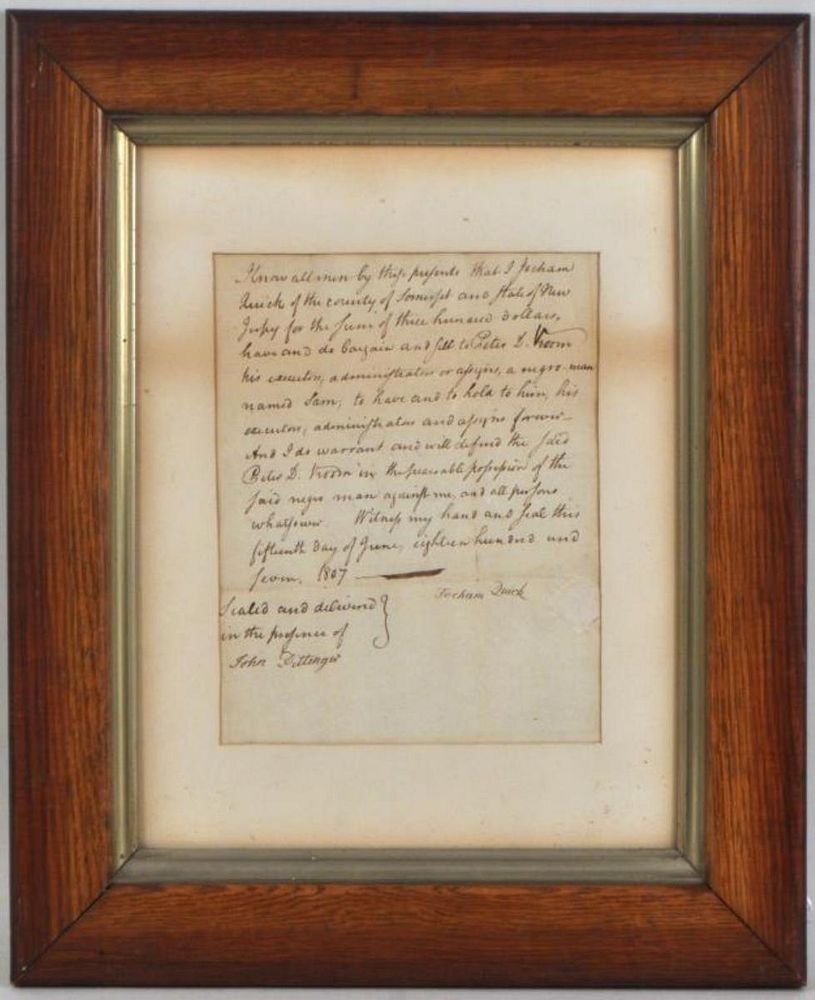 Know all men by these presents that I Jocham
Quick of the county of Somerset and State of New
Jersey for the sum of three hundred dollars,
have and do bargain and sell to Peter D. Vroom
his executors, administrators or assigns, a negro man
named Sam, to have and to hold to him, his
executors, administrators and assigns forever—
And I do warrant and will defend the said
Peter D. Vroom in the peaceable possession of the
said negro man against me, and all persons
whatsoever. Witness my hand and seal this
fifteenth day of June, eighteen hundred and
seven. 1807 —
Jocham Quick
Sealed and delivered
in the presence of
John